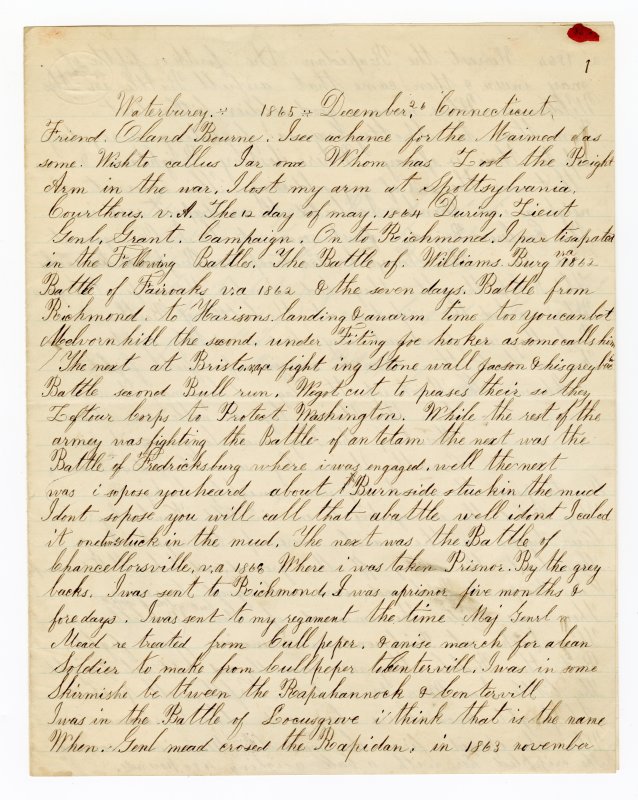 1
Waterburey. 1865 December, 26 Connecticut.
Friend. Oland Bourne. I see a chance for the Maimed as
some. Wish to call us I ar one Whom has Lost the Reight
Arm in the war, I lost my arm at Spottsylvania,
Courthous. v.A. The 12 day of may. 1864 During. Lieut
Genl. Grant. Campaign. On to Richmond. I partisapated
in the Following Battles. The Battle of. Williams. Burg va 1862
Battle of Fairoaks v.a 1862 & the seven days. Battle from
Richmond. to Harisons. landing & a warm time too you can bet
Malvern hill the second. under Fiting Joe hooker as some calls him
The next at Bristo fight ing Stone wall Jacson & his grey
Battle second Bull run. We got cut to peases their so they
Left our Corps to Protect Washington. While the rest of the
armey was fighting the Battle of antetam the next was the
Battle of Fredricksburg where i was engaged. well the next
was i sopose you heared about Burnside stuck in the mud
I dont sopose you will call that a battle well i dont I caled
it stuck in the mud, The next was the Battle of
Chancellorsville, v.a. 1863 Where i was taken Prisnor. By the grey
backs. I was sent to Richmond, I was a prisnor five months &
fore days. I was sent to my regament the time Maj Genrl
Mead re treated from Cull peper. & a nise march for a lean
Soldier to make from Cullpeper to Centervill. I was in some
Skirmishe be tween the Rapahannock & Centervill
I was in the Battle of Locusgrove i think that is the name
When. Genl mead crosed the Rapidan. in 1863 november